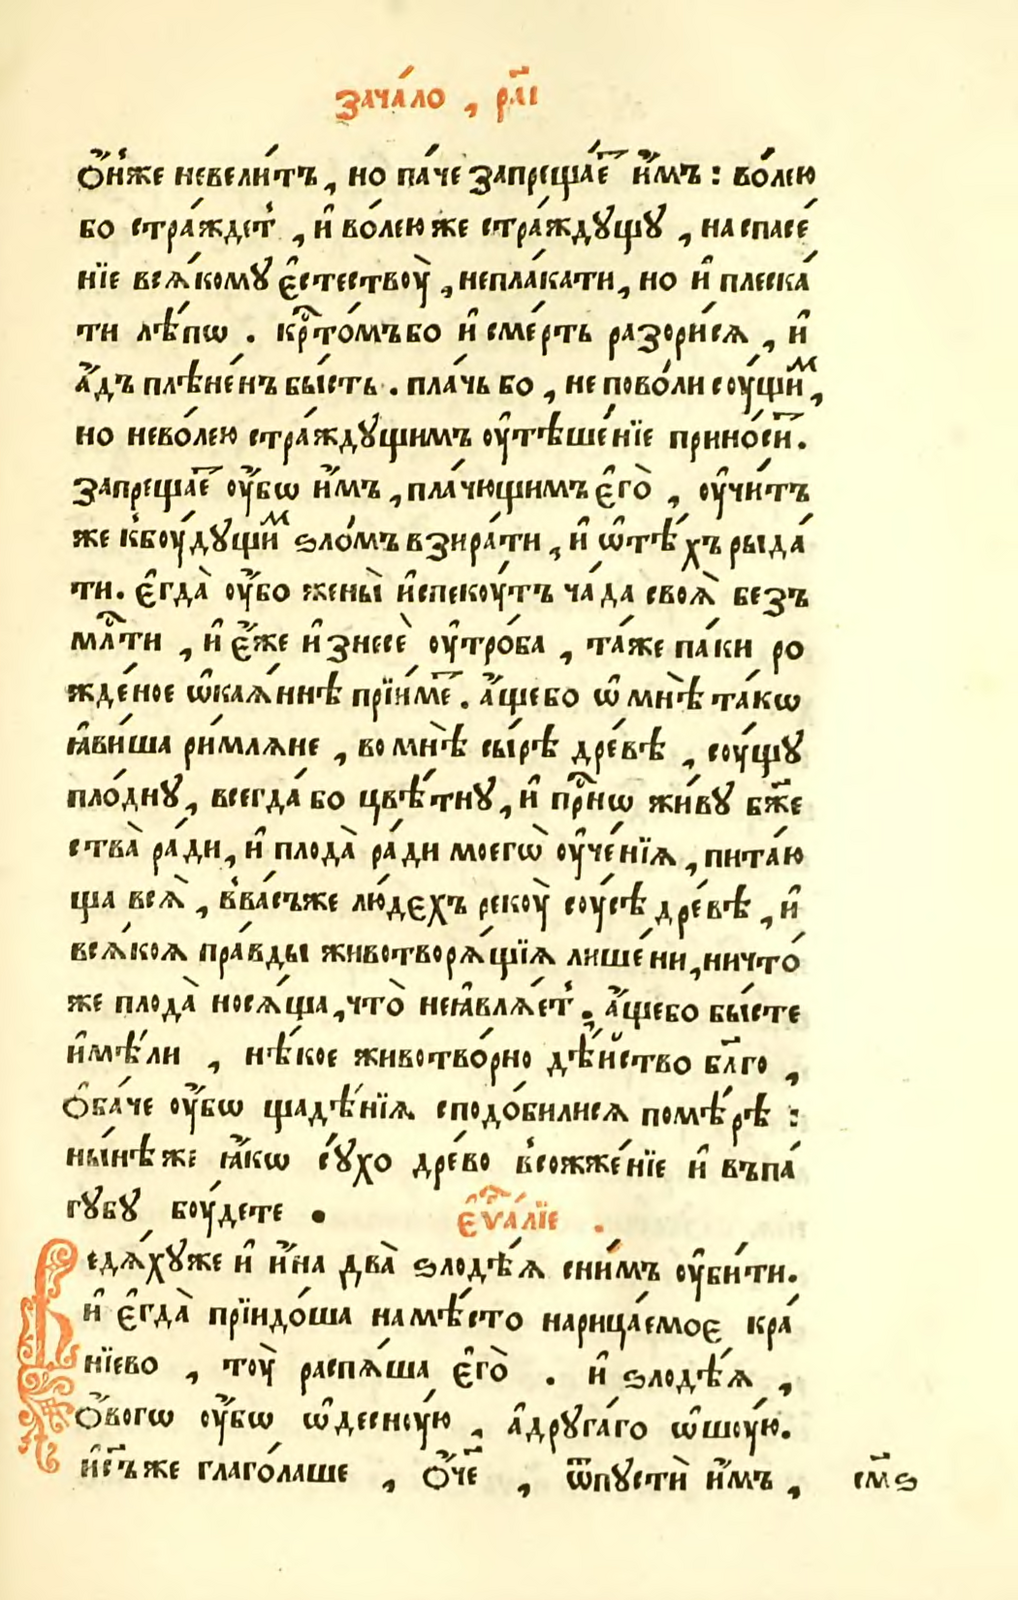 зача́ло , рлі҃
Ѻ҆́нже невели́тъ , но па́че запреща́еⷮ и҆̀мъ : во́лею
бо стра́ждет̾ , и҆ во́лею же стра́ждꙋщꙋ , на спасе́
нїе всѧ́комꙋ є҆стествоу̀ , непла́кати , но и҆ плеска́
ти лѣ́пѡ . крⷭ҇то́мъбо и҆ сме́рть разори́сѧ , и҆
а҆́дъ плѣне́нъ бы́сть . пла́чь бо , не пово́ли соу́щиⷨ ,
но нево́лею стра́ждꙋщимъ оу҆тѣше́нїе прино́сиⷮ .
запреща́еⷮ оу҆́бѡ и҆̀мъ , пла́чющимъ є҆го̀ , оу҆чи́тъ
же к̾боу́дꙋщиⷨ ѕло́мъ взира́ти , и҆ ѡ҆ тѣ́хъ рыда́
ти . є҆гда̀ оу҆́бо жены̀ и҆спекоу́тъ ча́да своѧ̀ безъ
млⷭ҇ти , и҆ є҆́же и҆знесѐ оу҆тро́ба , та́же па́ки ро
жде́ное ѡ҆каѧ́ннѣ прїи́меⷮ . а҆́щебо ѡ҆ мнѣ̀ та́кѡ
ꙗ҆ви́ша ри́млѧне , во мнѣ̀ сы́рѣ дре́вѣ , соу́щꙋ
пло́днꙋ , всегда́ бо цвѣ́тнꙋ , и҆ прⷭ҇нѡ жи́вꙋ бж҃е
ства̀ ра́ди , и҆ плода̀ ра́ди моегѡ̀ оу҆че́нїѧ , пита́ю
ща всѧ̀ , в̾ва́съже лю́дєхъ рекоу̀ соу́сѣ дре́вѣ , и҆
всѧ́коѧ пра́вды животворѧ́щїѧ лише́ни , ничто́
же плода̀ носѧ́ща , что̀ неꙗ҆влѧ́ет̾ . а҆́щебо бы́сте
и҆мѣ́ли , нѣ́кое животво́рно дѣ́йство бл҃го ,
Ѻ҆ба́че оу҆́бѡ щадѣ́нїѧ сподо́билисѧ помѣ́рѣ :
ны́нѣже ꙗ҆́кѡ сꙋ́хо дре́во в̾сожже́нїе и҆ въпа́
гꙋбꙋ боу́дете . є҆ѵⷢ҇а́лїе .
Ведѧ́хꙋже и҆ и҆́на два̀ ѕлодѣ́ѧ сни́мъ оу҆би́ти .
и҆ є҆гда̀ прїидо́ша на мѣ́сто нарица́емоє кра́
нїево , тоу̀ распѧ́ша є҆го̀ . и҆ ѕлодѣ́ѧ ,
Ѻ҆́вогѡ оу҆́бѡ ѡ҆десноу́ю , а҆дрꙋга́го ѡ҆шоу́ю .
и҆с҃ъже глаго́лаше , ѻ҆́ч҃е , ѿпꙋстѝ и҆̀мъ , см҃ѕ